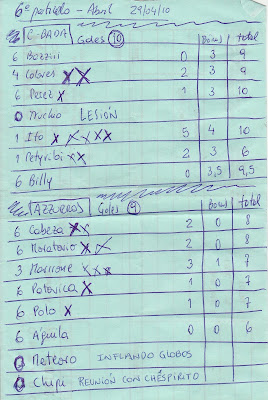 6º partido - Abril 29/04/10
C. BADA Goles 10 Bonus total
6 Bozzini 0 3 9
4 Colores X X 2 3 9
6 Perez X 1 3 10
0 Mucho LESIÓN
1 Ito X X X X X 5 4 10
1 Petyribi X X 2 3 6
6 Billy 0 3,5 9,5
AZZURROS Goles 9 Bonus total
6 Cabeza X X 2 0 8
6 Moratorio X X 2 0 8
3 Morrone X X X 3 1 7
6 Potovica X 1 0 7
6 Polo X 1 0 7
6 Aguila 0 0 6
0 Meteoro INFLANDO GLOBOS
0 Chipi REUNIÓN CON CHÉSPIRITO